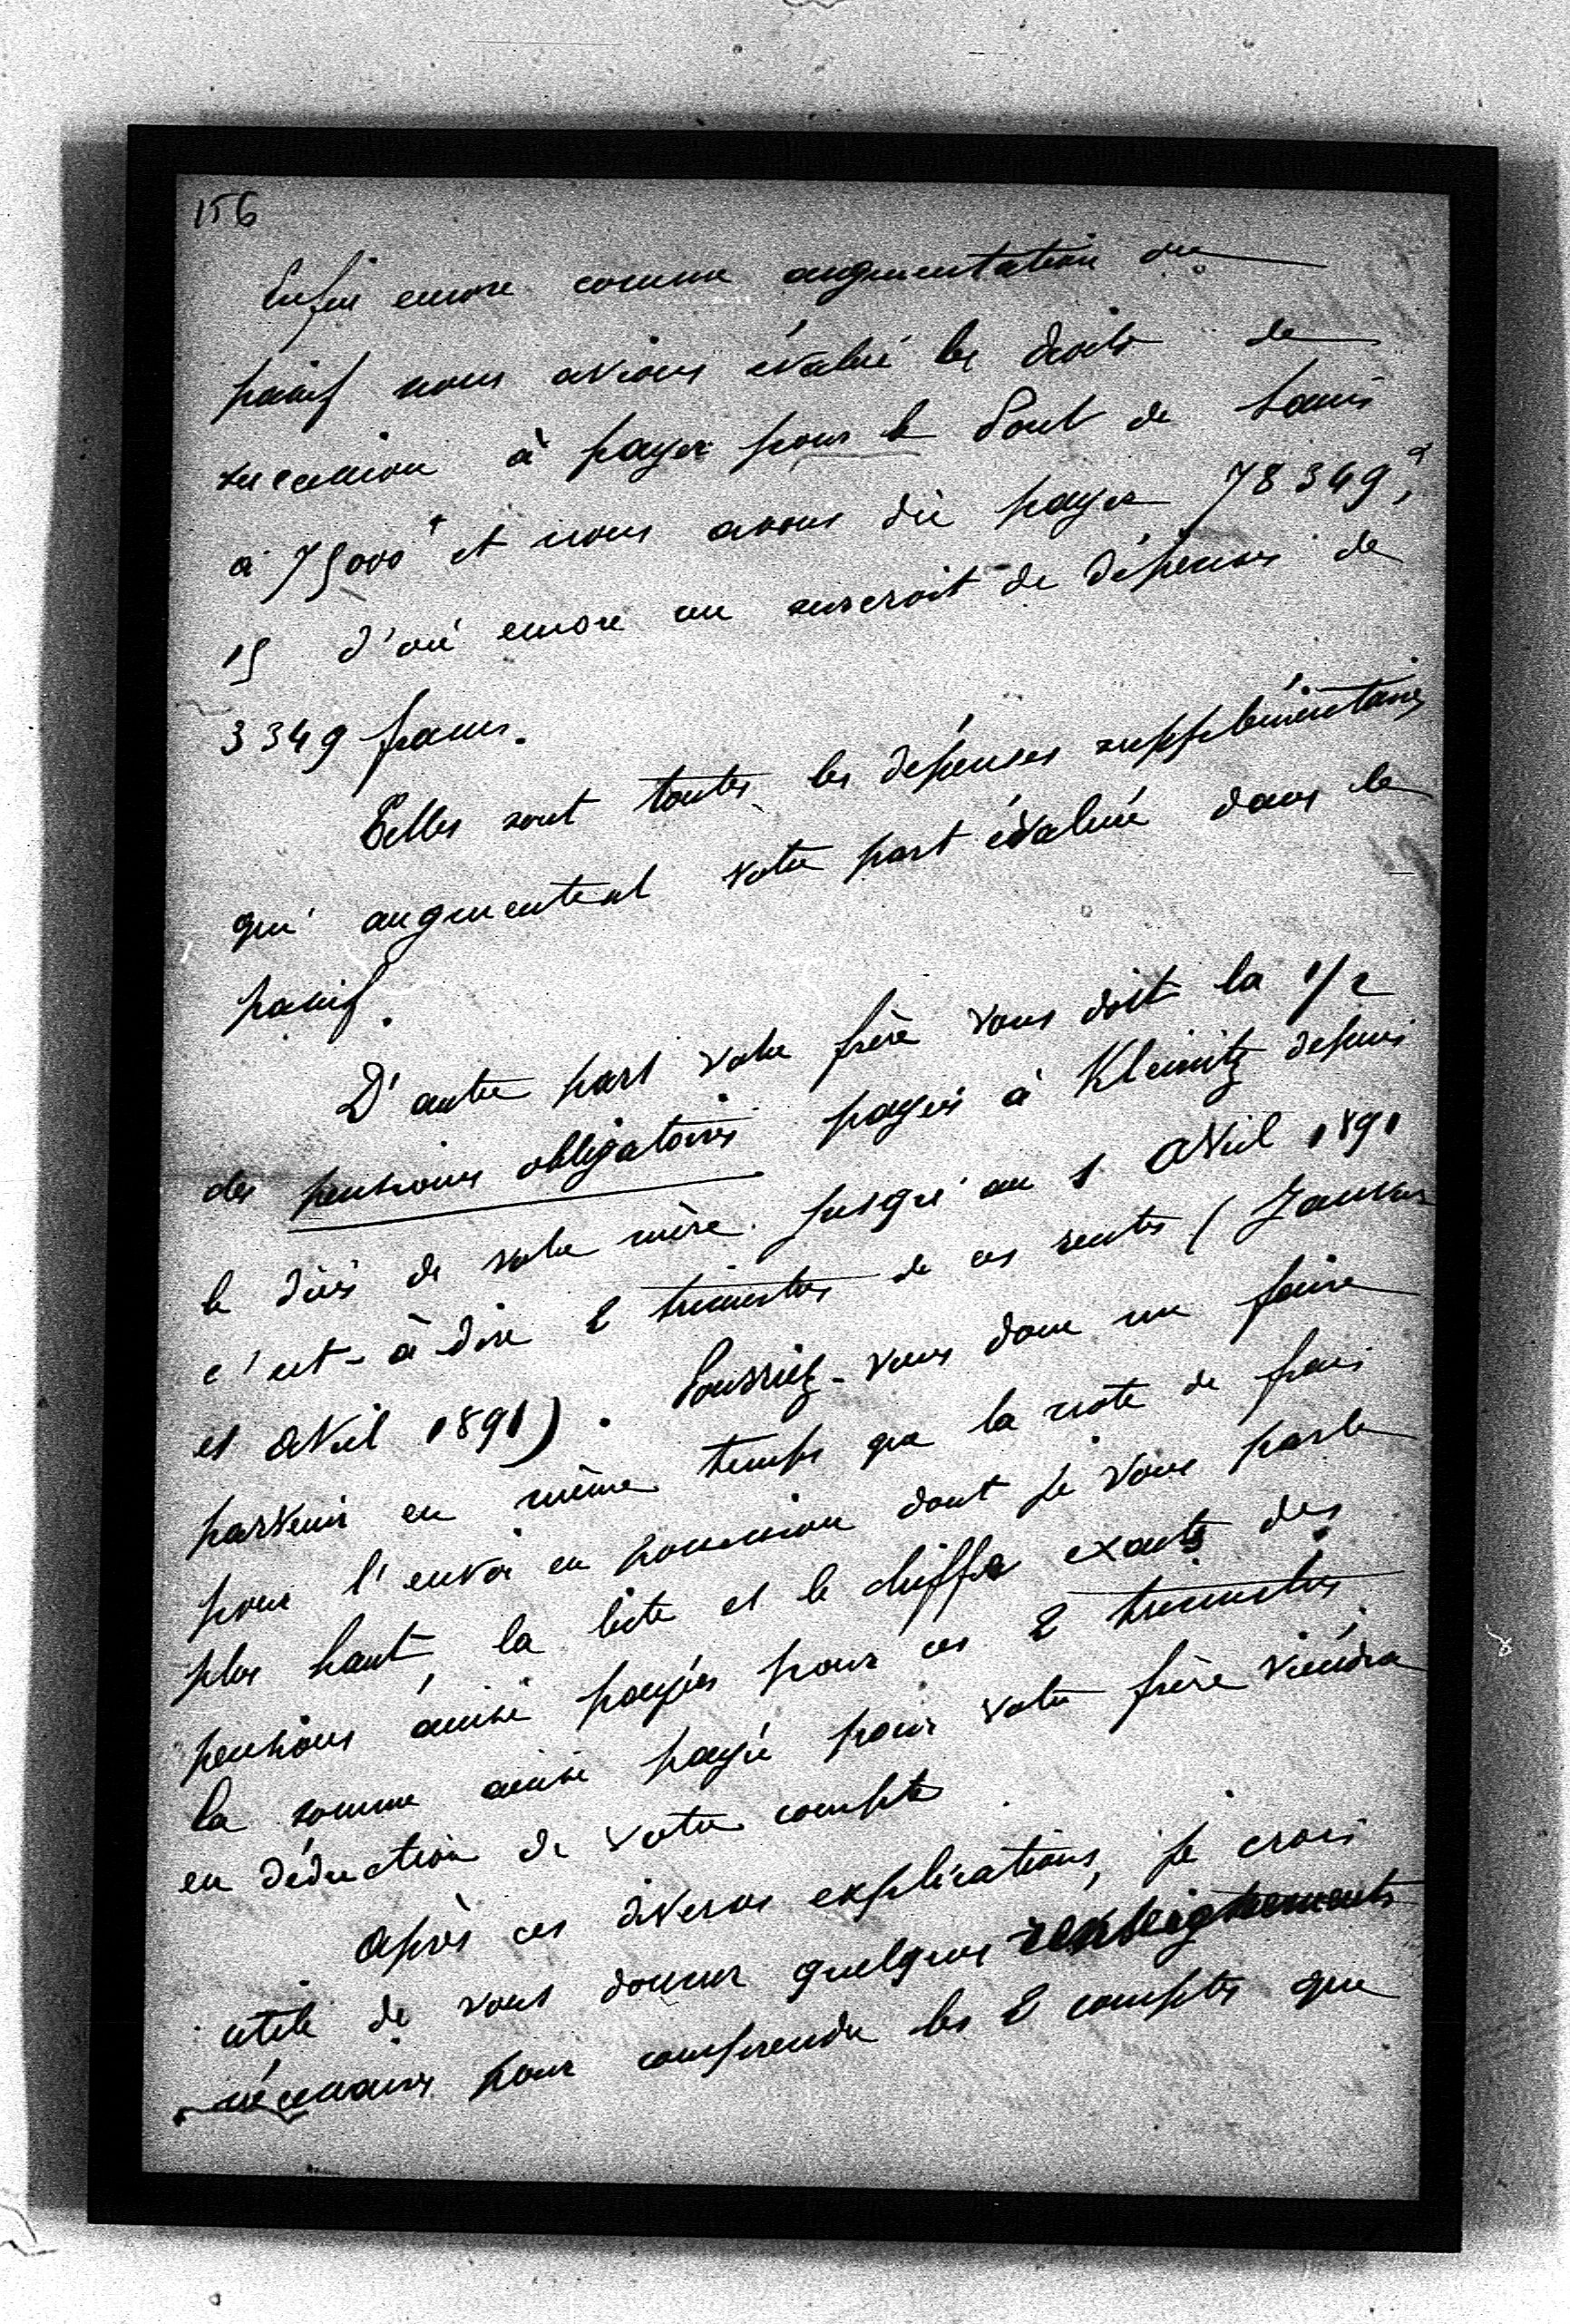 156
Enfin encore comme augmentation du
passif nous avions évalué les droits de
succession à payer pour le Pont de
à 75000 f et nous avons dû payer 78 349 f,
15 d'où encore un surcroit de dépenses de
3 349 francs.
Telles sont toutes les dépenses supplémentaires
qui augmentent votre part évaluée dans le
passif.
D'autre part votre frère vous doit la 1/2
des pensions obligatoires payés à Kleinitz depuis
le décès de votre mère jusqu'au 1 avril 1891
c'est-à-dire 2 trimestres de ces rentes (Janvier
et avril 1891). Pourriez-vous donc me faire
parvenir en même temps que la note de frais
pour l'envoi en possession dont je vous parle
plus haut, la liste et le chiffre exacts des
pensions ainsi payées pour ces 2 trimestres.
la somme ainsi payée pour votre frère viendra
en déduction de votre compte.
Après ces diverses explications, je crois
utile de vous donner quelques renseignements
nécessaires pour comprendre les 2 comptes que